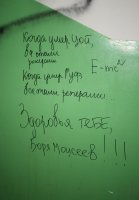 Когда умер Цой,
все стали
рокерами
E=mc
Когда умер Руф
все стали рэперами...
Здоровья тебе,
Боря Моисеев!!!